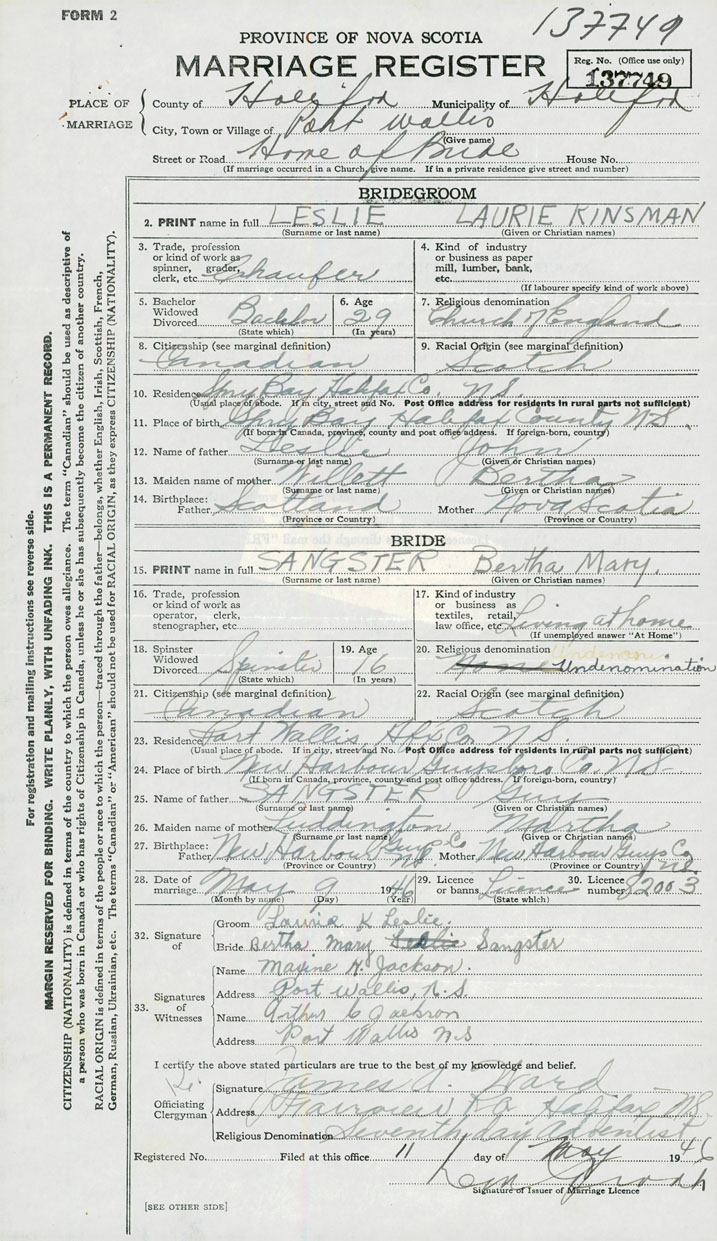 FORM 2
137749
PROVINCE OF NOVA SCOTIA
MARRIAGE REGISTER
Reg. No. (Office use only)
137749
PLACE OF MARRIAGE
County of Halifax Municipality of Halifax
City, Town or Village of Port Wallis
(Give name)
Street or Road Home of Bride House No.
(If marriage occurred in a Church, give name. If in a private residence give street and number)
BRIDEGROOM
2. PRINT name in full LESLIE LAURIE KINSMAN
(Surname or last name) (Given or Christian names)
3. Trade, profession 4. Kind of industry
or kind of work as or business as paper
spinner, grader, mill, lumber, bank,
clerk, etc. Chaufer etc.
(If labourer specify kind of work above)
5. Bachelor 6. Age 7. Religious denomination
Widowed Bachelor 29 Church of England
Divorced (State which) (In years)
8. Citizenship (see marginal definition) 9. Racial Origin (see marginal definition)
Canadian Scotch
10. Residence Spry Bay Halifax Co. N.S.
(Usual place of abode. If in city, street and No. Post Office address for residents in rural parts not sufficient)
11. Place of birth Spry Bay Halifax County N.S.
(If born in Canada, province, county and post office address. If foreign-born, country)
12. Name of father Leslie John
(Surname or last name) (Given or Christian names)
13. Maiden name of mother Willett Bertha
(Surname or last name) (Given or Christian names)
14. Birthplace:
Father Scotland Mother Nova Scotia
(Province or Country) (Province or Country)
BRIDE
15. PRINT name in full SANGSTER Bertha Mary.
(Surname or last name) (Given or Christian names)
16. Trade, profession 17. Kind of industry
or kind of work as or business as
operator, clerk, textiles, retail,
stenographer, etc. law office, etc. Living at home
(If unemployed answer "At Home")
18. Spinster 19. Age 20. Religious denomination
Widowed Spinster 16 None Undenomination
Divorced (State which) (In years)
21. Citizenship (see marginal definition) 22. Racial Origin (see marginal definition)
Canadian Scotch
23. Residence Port Wallis Hfx Co. N.S.
(Usual place of abode. If in city, street and No. Post Office address for residents in rural parts not sufficient)
24. Place of birth New Harbour Guysboro Co. N.S.
(If born in Canada, province, county and post office address. If foreign-born, country)
25. Name of father SANGSTER Guy
(Surname or last name) (Given or Christian names)
26. Maiden name of mother Luddington Martha
(Surname or last name) (Given or Christian names)
27. Birthplace:
Father New Harbour Guys Co NS Mother New Harbour Guys Co NS.
(Province or Country) (Province or Country)
28. Date of marriage May 9 1946 29. Licence or banns Licence 30. Licence number
(Month by name) (Day) (Year) (State which)
32. Signature of
Groom Laurie K Leslie.
Bride Bertha Mary Leslie Sangster
33. Signatures of Witnesses
Name Maxine H. Jackson.
Address Port Wallis, N.S.
Name Arthur C Jackson
Address Port Wallis N S
I certify the above stated particulars are true to the best of my knowledge and belief.
Officiating Clergyman
Signature James A. Ward
Address Fairview P.O. Halifax N.S.
Religious Denomination Seventh day Adventist
Registered No. Filed at this office 11 day of May 1946
Signature of Issuer of Marriage Licence
[SEE OTHER SIDE]
For registration and mailing instructions see reverse side.
MARGIN RESERVED FOR BINDING. WRITE PLAINLY, WITH UNFADING INK. THIS IS A PERMANENT RECORD.
CITIZENSHIP (NATIONALITY) is defined in terms of the country to which the person owes allegiance. The term "Canadian" should be used as descriptive of
a person who was born in Canada or who has rights of Citizenship in Canada, unless he or she has subsequently become the citizen of another country.
RACIAL ORIGIN is defined in terms of the people or race to which the person—traced through the father—belongs, whether English, Irish, Scottish, French,
German, Russian, Ukrainian, etc. The terms "Canadian" or "American" should not be used for RACIAL ORIGIN, as they express CITIZENSHIP (NATIONALITY).